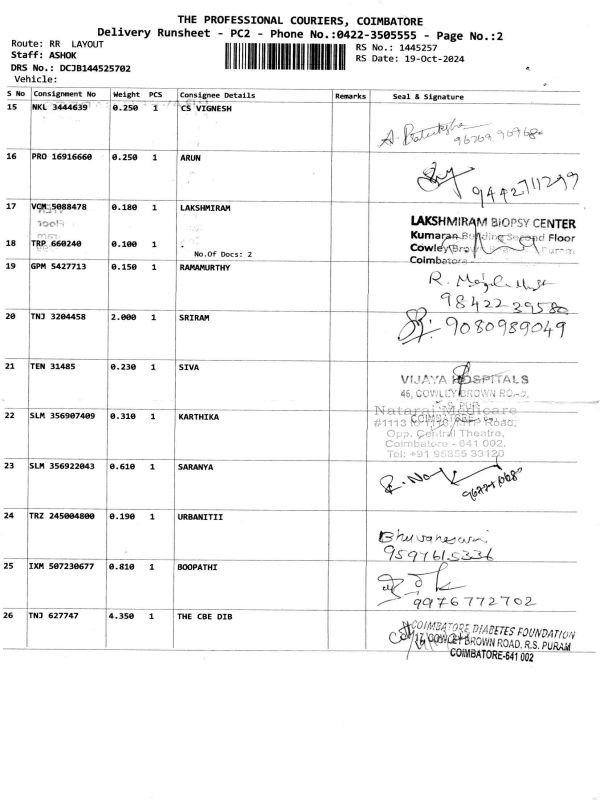 THE PROFESSIONAL COURIERS, COIMBATORE
Delivery Runsheet - PC2 - Phone No.:0422-3505555 - Page No.:2
Route: RR LAYOUT
RS No.: 1445257
Staff: ASHOK
RS Date: 19-Oct-2024
DRS No.: DCJB144525702
Vehicle:
S No Consignment No Weight PCS Consignee Details Remarks Seal & Signature
15 NKL 3444639 0.250 1 CS VIGNESH
16 PRO 16916660 0.250 1 ARUN
9442711299
17 VCM 5088478 0.180 1 LAKSHMIRAM
LAKSHMIRAM BIOPSY CENTER
Kumaran Building Second Floor
18 TRP 660240 0.100 1 .
Cowley Brown
No.Of Docs: 2
Coimbatore
19 GPM 5427713 0.150 1 RAMAMURTHY
R.
9842239580
20 TNJ 3204458 2.000 1 SRIRAM
9080989049
21 TEN 31485 0.230 1 SIVA
VIJAYA HOSPITALS
45, COWLEY BROWN ROAD,
R.S. PUR
22 SLM 356907409 0.310 1 KARTHIKA
Nataraj Medicare
COIMBATORE
#1113 to 1116, MTP Road,
Opp. Central Theatre,
Coimbatore - 641 002.
Tel: +91 95855 33120
23 SLM 356922043 0.610 1 SARANYA
24 TRZ 245004800 0.190 1 URBANITII
Bhuvaneswari
9597615336
25 IXM 507230677 0.810 1 BOOPATHI
9976772702
26 TNJ 627747 4.350 1 THE CBE DIB
COIMBATORE DIABETES FOUNDATION
COWLEY BROWN ROAD, R.S. PURAM
COIMBATORE-641 002